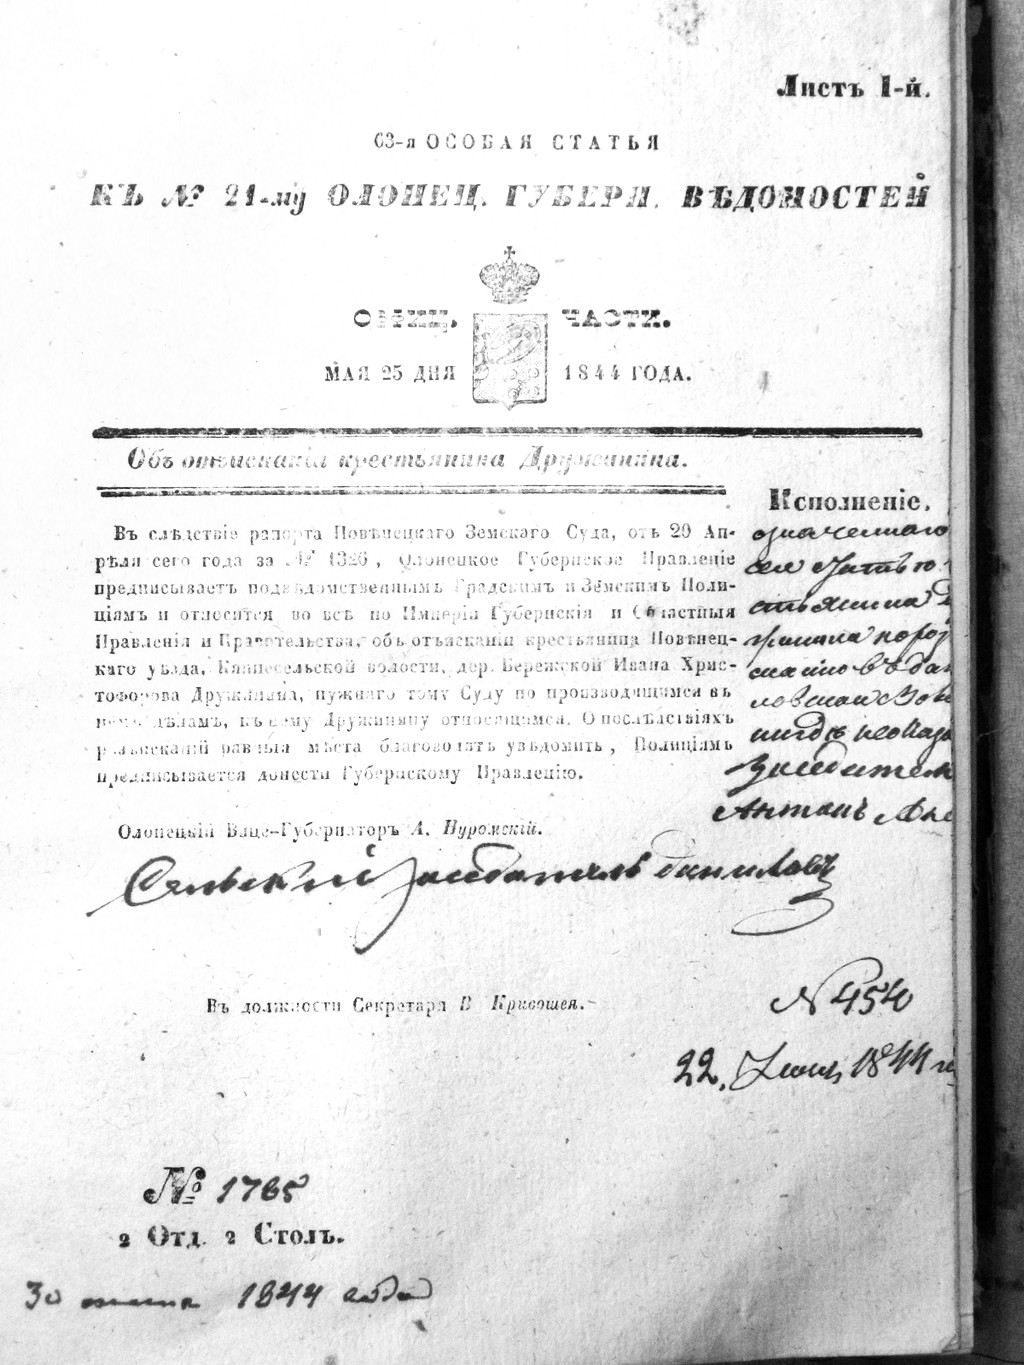 Листъ 1-й.
63-я ОСОБАЯ СТАТЬЯ
КЪ № 21-му ОЛОНЕЦ. ГУБЕРН. ВѢДОМОСТЕЙ
ОФФИЦ. ЧАСТИ.
МАЯ 25 ДНЯ 1844 ГОДА.
Объ отысканіи крестьянина Дружинина.
Исполненіе.
Въ слѣдствіе рапорта Повѣнецкаго Земскаго Суда, отъ 29 Ап-
рѣля сего года за № 1326, Олонецкое Губернское Правленіе
предписываетъ подвѣдомственнымъ Градскимъ и Земскимъ Поли-
ціямъ и относится во всѣ по Имперіи Губернскія и Областныя
Правленія и Правительства, объ отъисканіи крестьянина Повѣнец-
каго уѣзда, Кяппесельской волости, дер. Бережской Ивана Хрис-
тофорова Дружинина, нужнаго тому Суду по производящимся въ
немъ дѣламъ, къ нему Дружинину относящимся. О послѣдствіяхъ
разъисканій равныя мѣста благоволятъ увѣдомить, Полиціямъ
предписывается донести Губернскому Правленію.
означеннаго
Антонъ
Олонецкій Вице-Губернаторъ А. Нуромскій.
Сельский Заседатель Даниловъ
Въ должности Секретаря В Кривошея.
№ 454
22. 1844
№ 1765
2 Отд. 2 Столъ.
30 1844 года